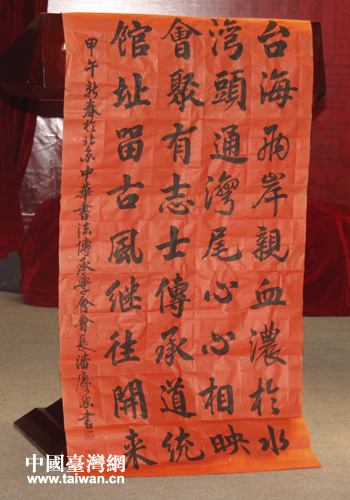 台海两岸親血濃於水
湾頭通灣尾心心相映
會聚有志士傳承道统
馆址留古風继往開来
甲午新春於北京中華書法傳承學會會長潘慶書
中國臺灣網
www.taiwan.cn